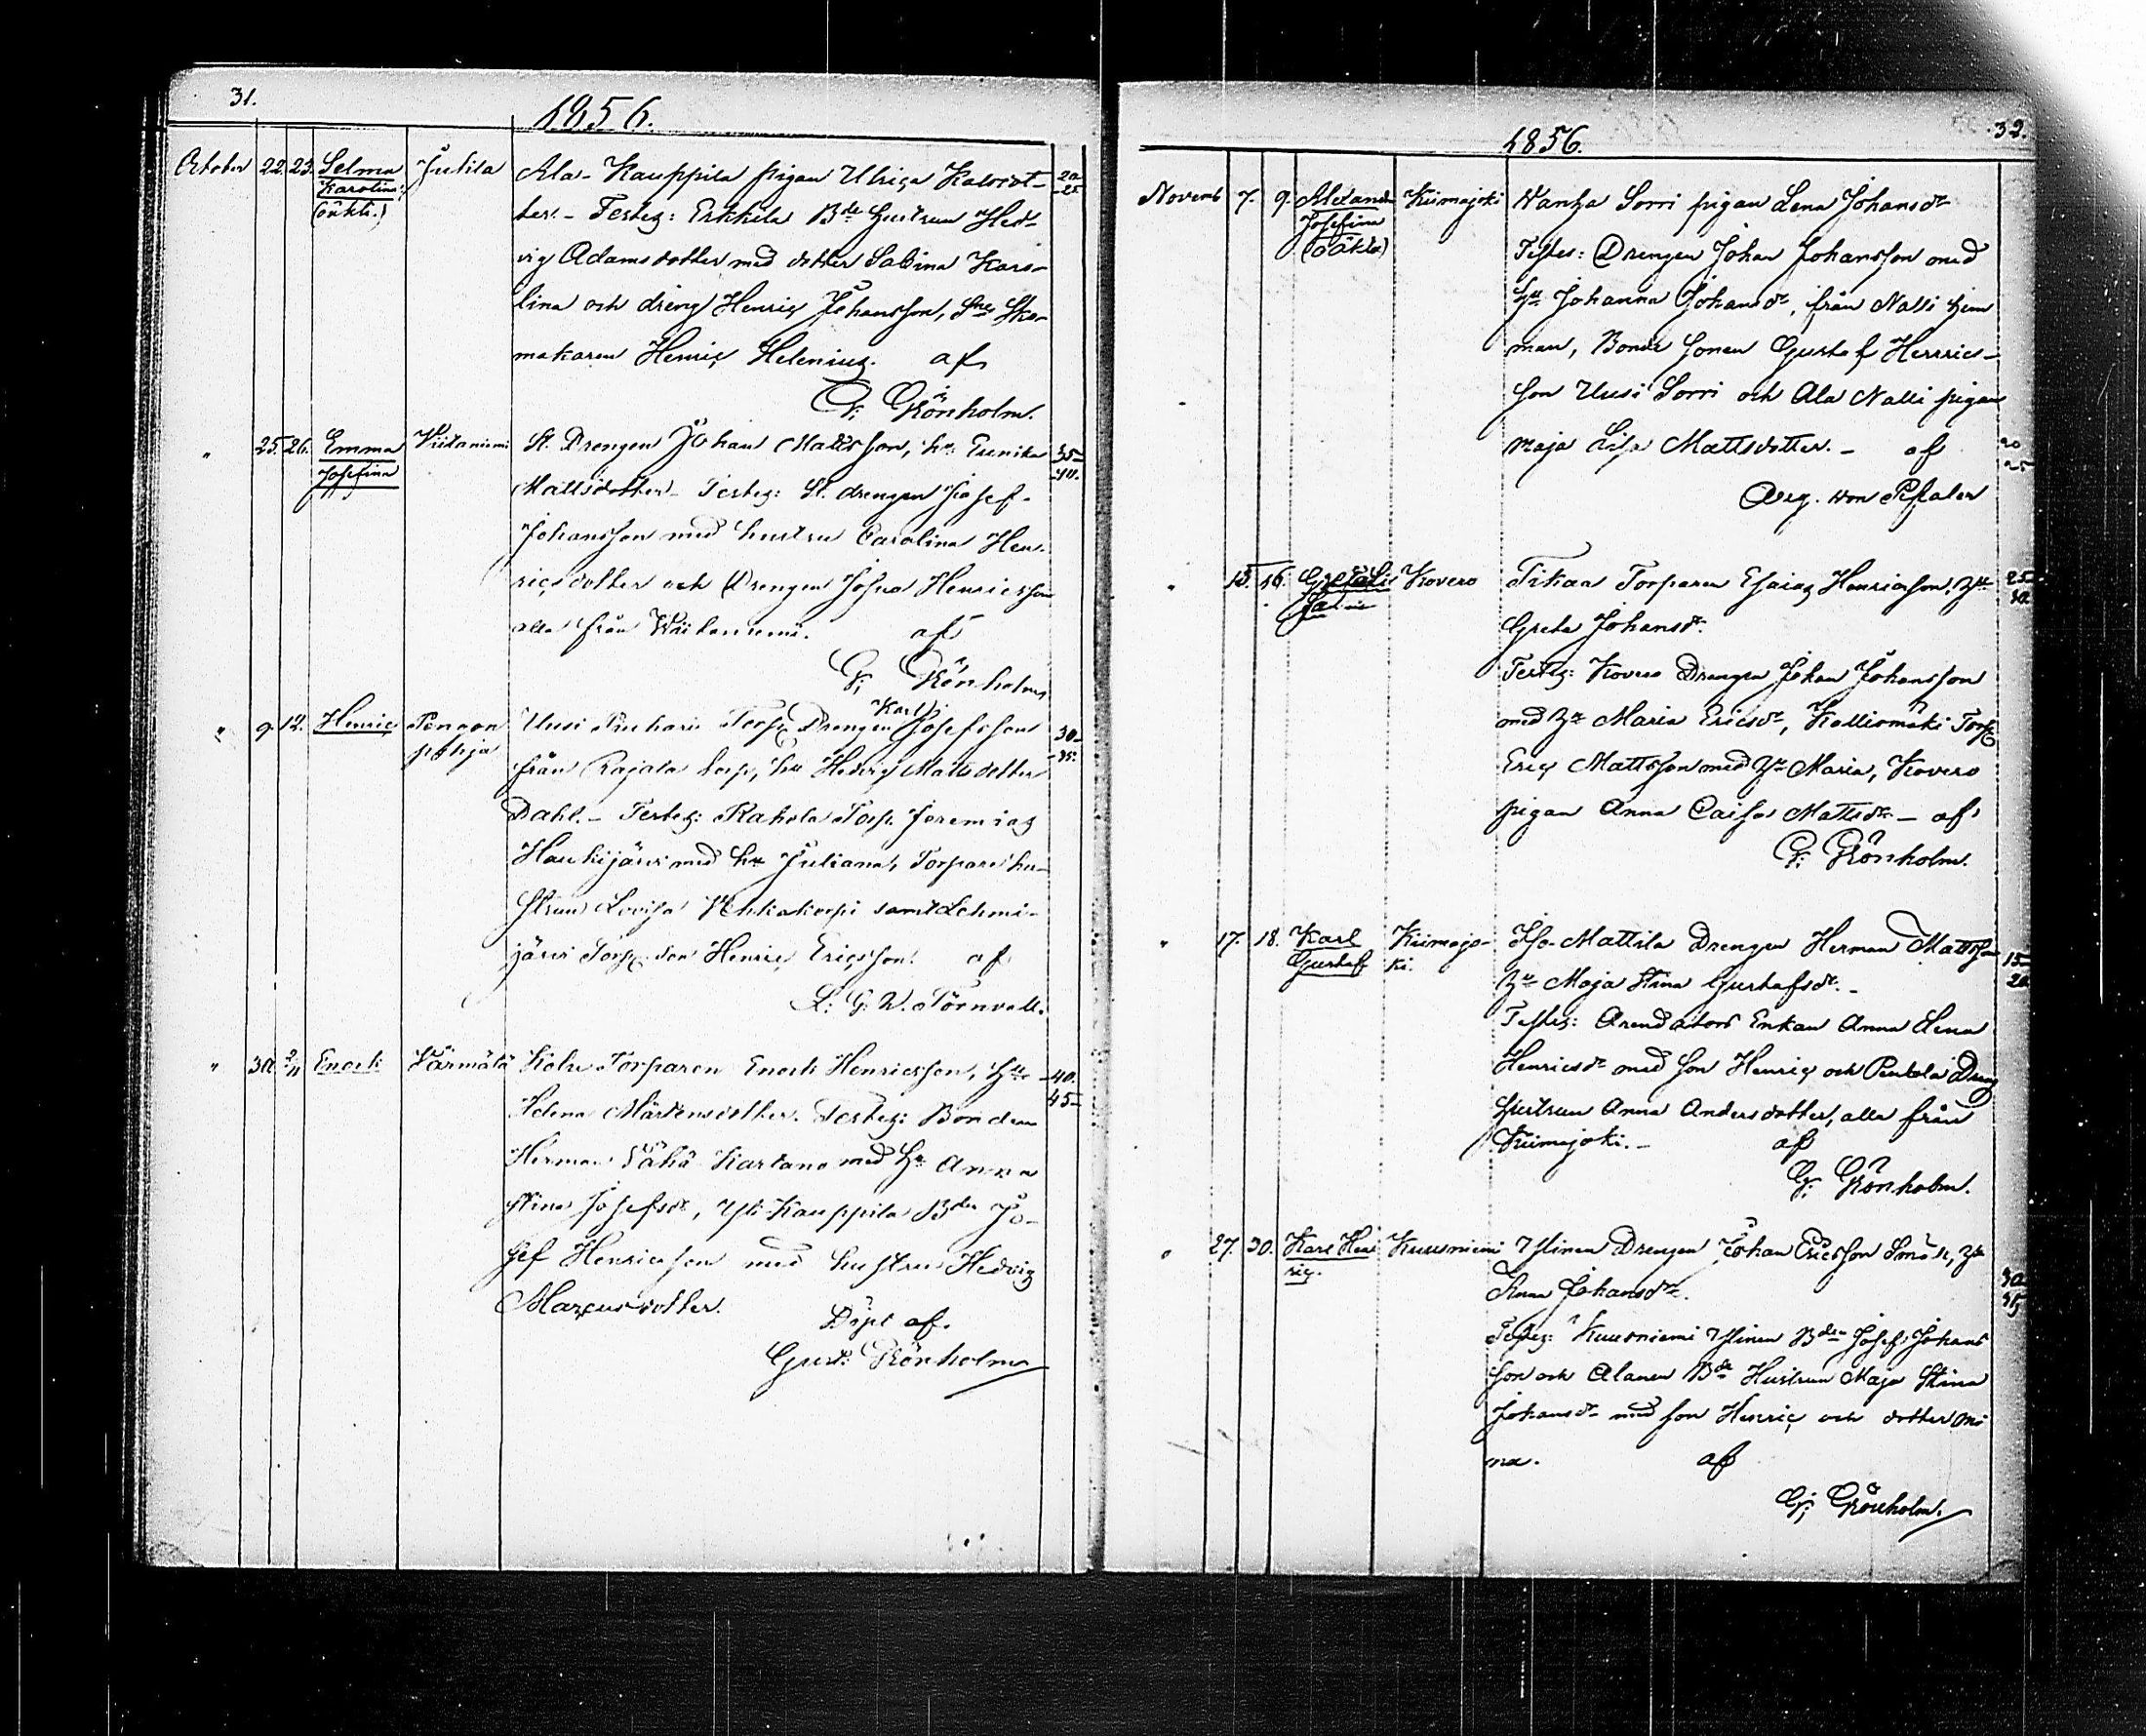 31.
1856.
October 22. 23. Selma Jutila Ala-Kauppila pigan Ulrica Kalsdot-
Karolina
(oäkta.)
ter. - Testes: Erkkila Bde hustrun Hed-
vig Adamsdotter med dotter Sabina Karo-
lina och dreng Henric Johansson, Sne Sko-
makaren Henric Helenius. af
G. Grönholm.
20-25
" 25. 26. Emma Viitaniemi St. Drengen Johan Mattsson, hu Eunika
Josefina
Mattsdotter. Testes: St. drengen Josef
Johansson med hustru Carolina Hen-
ricsdotter och Drengen Josua Henricsson
alla från Wiitaniemi. af
G. Grönholm
35-40.
" 9. 12. Henric Pengon Uusi Drengen Karl Josefsson
pohja
från Rajala torp, hu Hedvig Mattsdotter
Dahl. - Testes: Rahola Torp. Jeremias
Haukijärvi med hu Juliana, Torpare hu-
strun Lovisa samt Lehmi-
järvi Torp. son Henric Ericsson. af
L. G. W. Törnvall.
30-35.
" 30. 2/11 Enoch Värmälä Torparen Enoch Henricsson, Hu
Helena Mårtensdotter. Testes: Bonden
Herman Vähä Kartano med Hu Anna
Stina Josefsdr, Yli-Kauppila Bden Jo-
sef Henricsson med hustru Hedvig
Marcusdotter. Döpt af.
Gust. Grönholm
40.
45-
32.
1856.
Novemb 7. 9. Alexandra Kiimajoki Wanha Sorri pigan Lena Johansdr
Josefina
(oäkta)
Testes: Drengen Johan Johansson med
Hu Johanna Johansdr, från Nalli hem
man, Bonde sonen Gustaf Henrics-
son Uusi Sorri och Ala Nalli pigan
Maja Lisa Mattsdotter. - af
Aug. von Pfaler
20
25
" 15. 16. Kovero Tikan Torparen Esaias Henricsson, Hu
Greta Johansdr.
Testes: Kovero Drengen Johan Johansson
med Hu Maria Ericsdr, Kalliomäki Torp
Eric Mattsson med Hu Maria, Kovero
pigan Anna Caisa Mattsdr. - af
G. Grönholm.
25
30
" 17. 18. Karl Kiimajo- Iso-Mattila Drengen Herman Mattsson
Gustaf ki.
Hu Maja Stina Gustafsdr. -
Testes: Arendators Enkan Anna Lena
Henricsdr med son Henric och Penkola Dreng
hustrun Anna Andersdotter, alla från
Kiimajoki. - af
G. Grönholm.
15-
20
" 27. 30. Karl Hen Kuusniemi Ylinen Drengen Johan Ericsson Hu
ric.
Anna Johansdr.
Testes: Kuusniemi Ylinen Bden Josef Johans
son och Alanen Bde Hustrun Maja Stina
Johansdr med son Henric och dotter Mi
na. af
G. Grönholm.
30
35